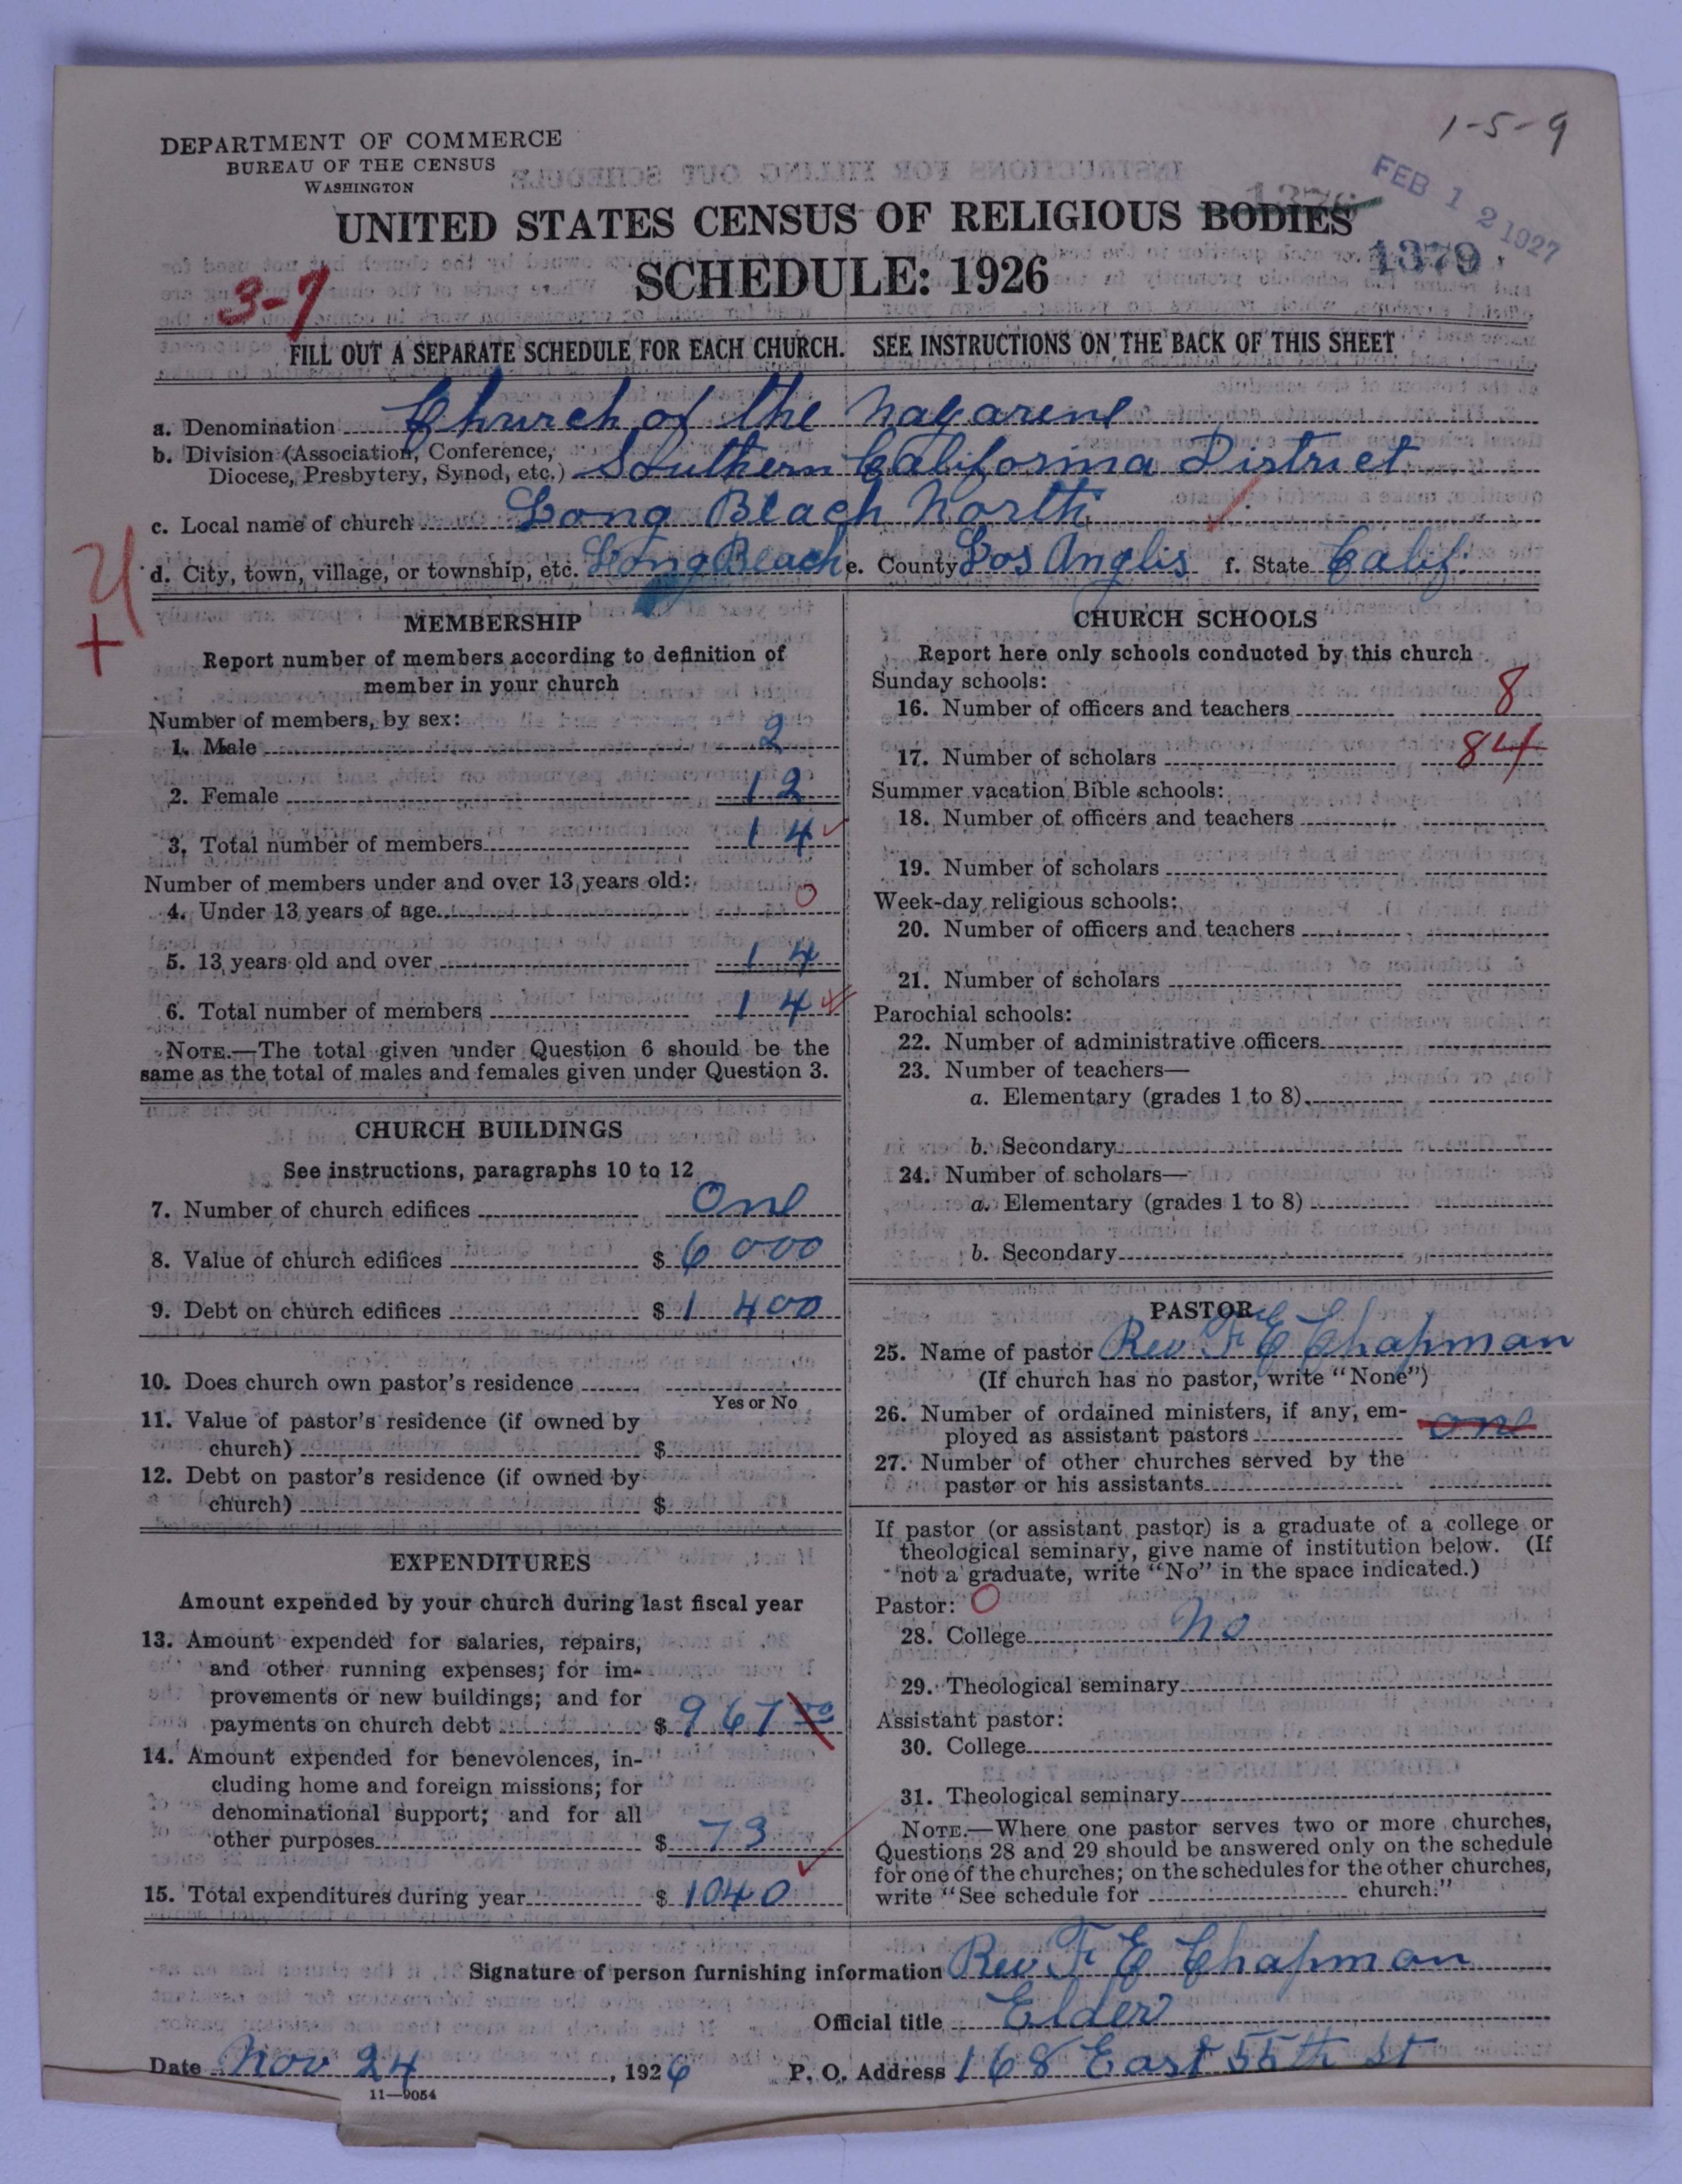 1-5-9
DEPARTMENT OF COMMERCE
BUREAU OF THE CENSUS
WASHINGTON
FEB 12 1927
1376
UNITED STATES CENSUS OF RELIGIOUS BODIES
1379
SCHEDULE: 1926
3-7
FILL OUT A SEPARATE SCHEDULE FOR EACH CHURCH. SEE INSTRUCTIONS ON THE BACK OF THIS SHEET
a. Denomination Church of the Nazarene
b. Division (Association, Conference,
Diocese, Presbytery, Synod, etc.) Southern California District
c. Local name of church Long Beach North
d. City, town, village, or township, etc. Long Beach e. County Los Anglis f. State Calif.
MEMBERSHIP
Report number of members according to definition of
member in your church
Number of members, by sex:
1. Male 2
2. Female 12
3. Total number of members 14
Number of members under and over 13 years old:
4. Under 13 years of age 0
5. 13 years old and over 14
6. Total number of members 14
NOTE.—The total given under Question 6 should be the
same as the total of males and females given under Question 3.
CHURCH BUILDINGS
See instructions, paragraphs 10 to 12
7. Number of church edifices One
8. Value of church edifices $ 6000
9. Debt on church edifices $ 1400
10. Does church own pastor's residence
Yes or No
11. Value of pastor's residence (if owned by
church) $
12. Debt on pastor's residence (if owned by
church) $
EXPENDITURES
Amount expended by your church during last fiscal year
13. Amount expended for salaries, repairs,
and other running expenses; for im-
provements or new buildings; and for
payments on church debt $ 967 00
14. Amount expended for benevolences, in-
cluding home and foreign missions; for
denominational support; and for all
other purposes $ 73
15. Total expenditures during year $ 1040
CHURCH SCHOOLS
Report here only schools conducted by this church
Sunday schools:
16. Number of officers and teachers 8
17. Number of scholars 84
Summer vacation Bible schools:
18. Number of officers and teachers
19. Number of scholars
Week-day religious schools:
20. Number of officers and teachers
21. Number of scholars
Parochial schools:
22. Number of administrative officers
23. Number of teachers—
a. Elementary (grades 1 to 8)
b. Secondary
24. Number of scholars—
a. Elementary (grades 1 to 8)
b. Secondary
PASTOR
25. Name of pastor Rev F E Chapman
(If church has no pastor, write "None")
26. Number of ordained ministers, if any, em-
ployed as assistant pastors one
27. Number of other churches served by the
pastor or his assistants
If pastor (or assistant pastor) is a graduate of a college or
theological seminary, give name of institution below. (If
not a graduate, write "No" in the space indicated.)
Pastor: 0
28. College No
29. Theological seminary
Assistant pastor:
30. College
31. Theological seminary
NOTE.—Where one pastor serves two or more churches,
Questions 28 and 29 should be answered only on the schedule
for one of the churches; on the schedules for the other churches,
write "See schedule for church."
Signature of person furnishing information Rev F E Chapman
Official title Elder
Date Nov 24, 1926 P. O. Address 168 East 55th St
11—9054